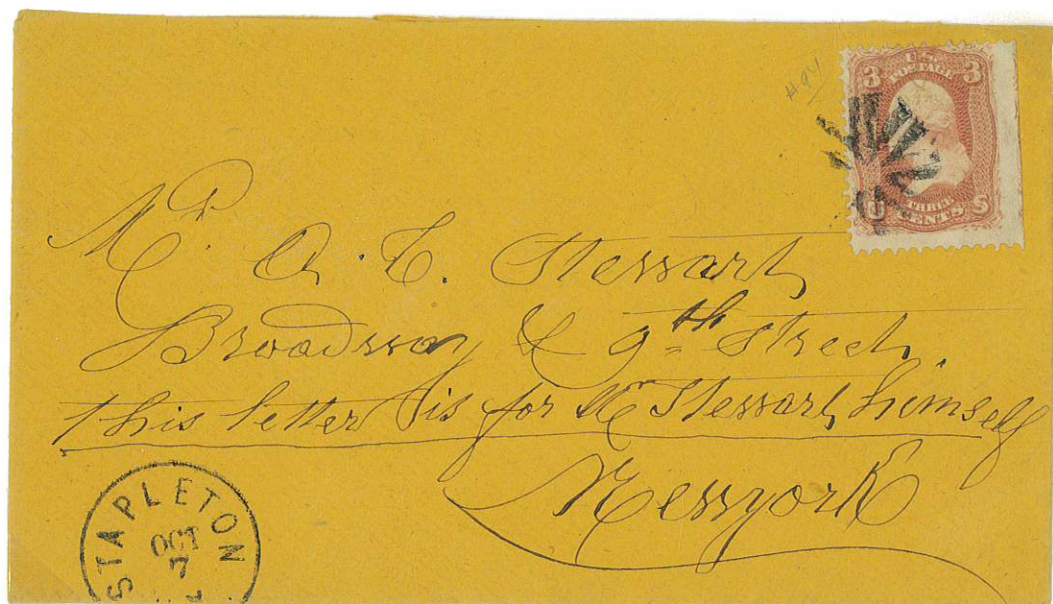 #94
U.S.
POSTAGE
3 3
U S
THREE
CENTS
Mr. A. T. Stewart
Broadway & 9th Street,
this letter is for Mr Stewart, himself
Newyork
STAPLETON
OCT
7